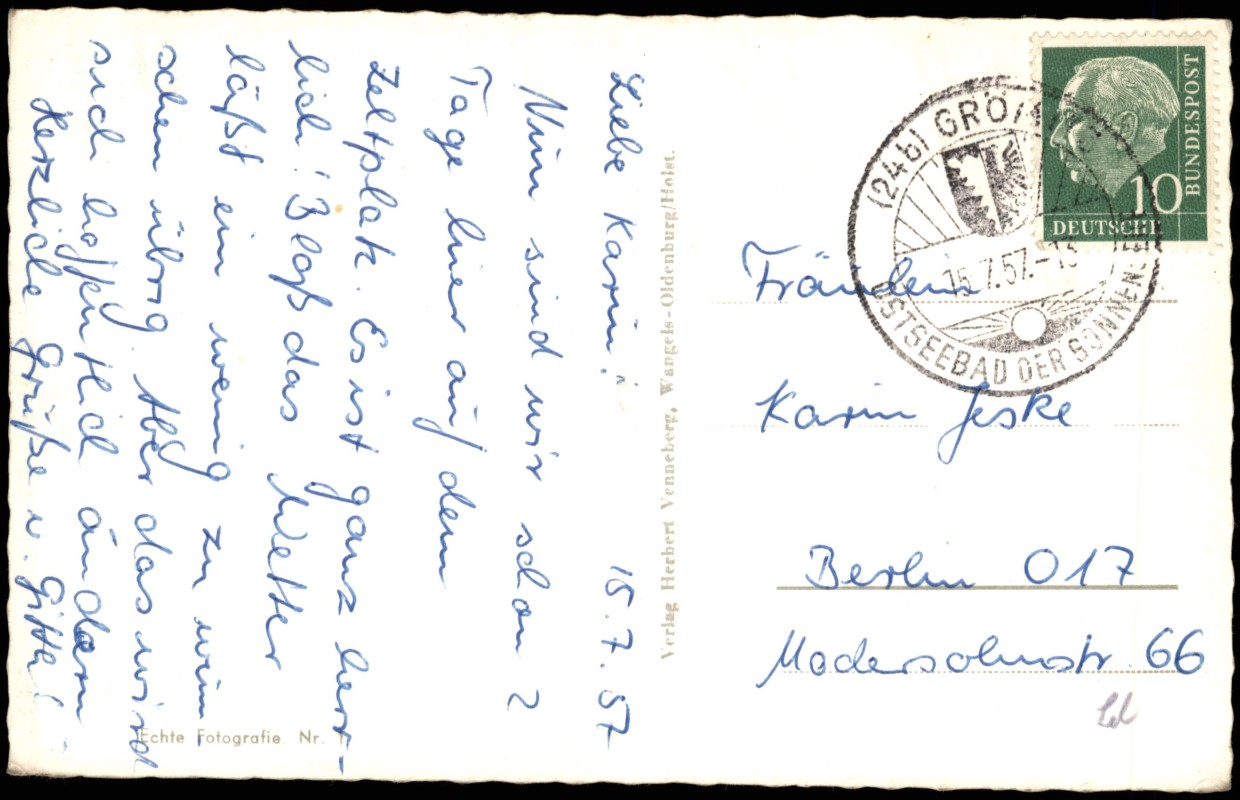 Liebe Karin! 15.7.57
Nun sind wir schon 2
Tage hier auf dem
Zeltplatz. Es ist ganz herr-
lich! Bloß das Wetter
läßt ein wenig zu wün-
schen übrig. Aber das wird
sich hoffentlich ändern.
Herzliche Grüße u. Gitta!
Verlag Herbert Venneberg, Wangels-Oldenburg/Holst.
Echte Fotografie Nr.
(24b) GRÖMITZ
15.7.57.-13
OSTSEEBAD DER SONNEN
10
DEUTSCHE
BUNDESPOST
Fräulein
Karin Jeske
Berlin O17
Modersohnstr. 66